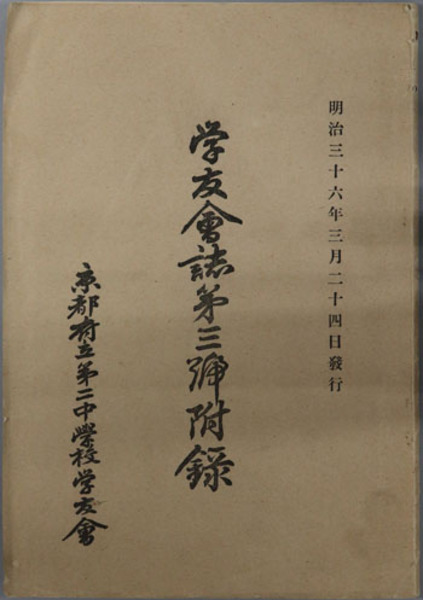 明治三十六年三月二十四日發行
学友會誌第三號附錄
京都府立第二中學校学友會